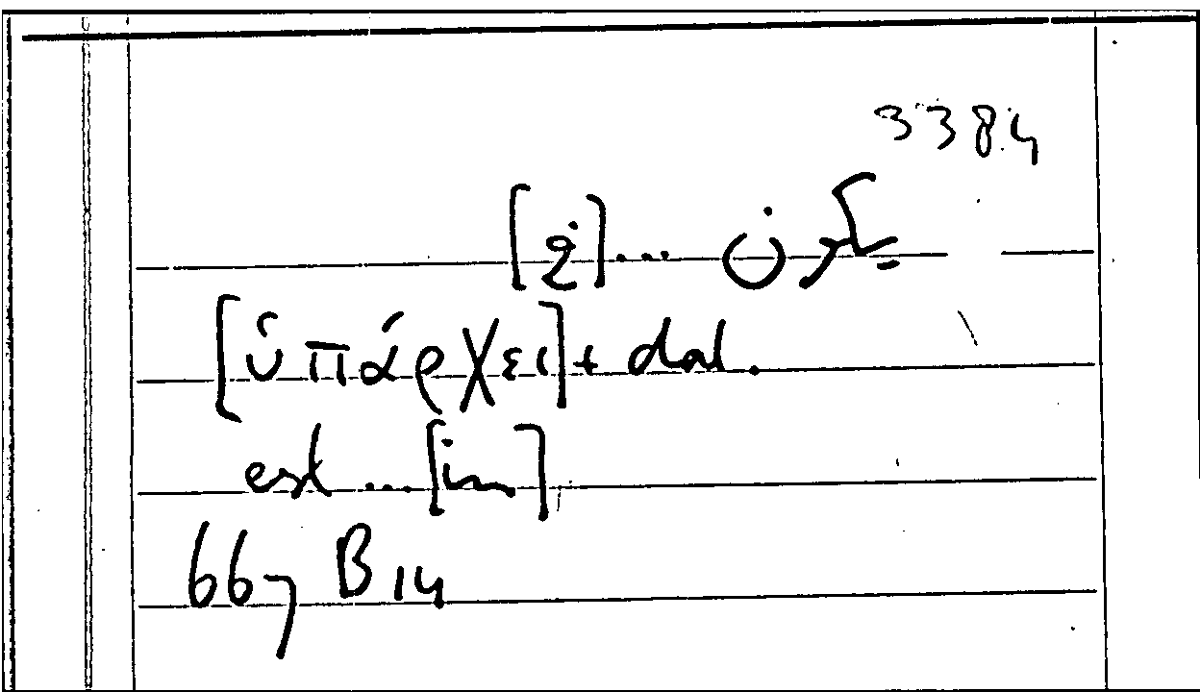 3384
يكون ... [في]
[ὑπάρχει] + dat.
est ... [in]
667 B 14